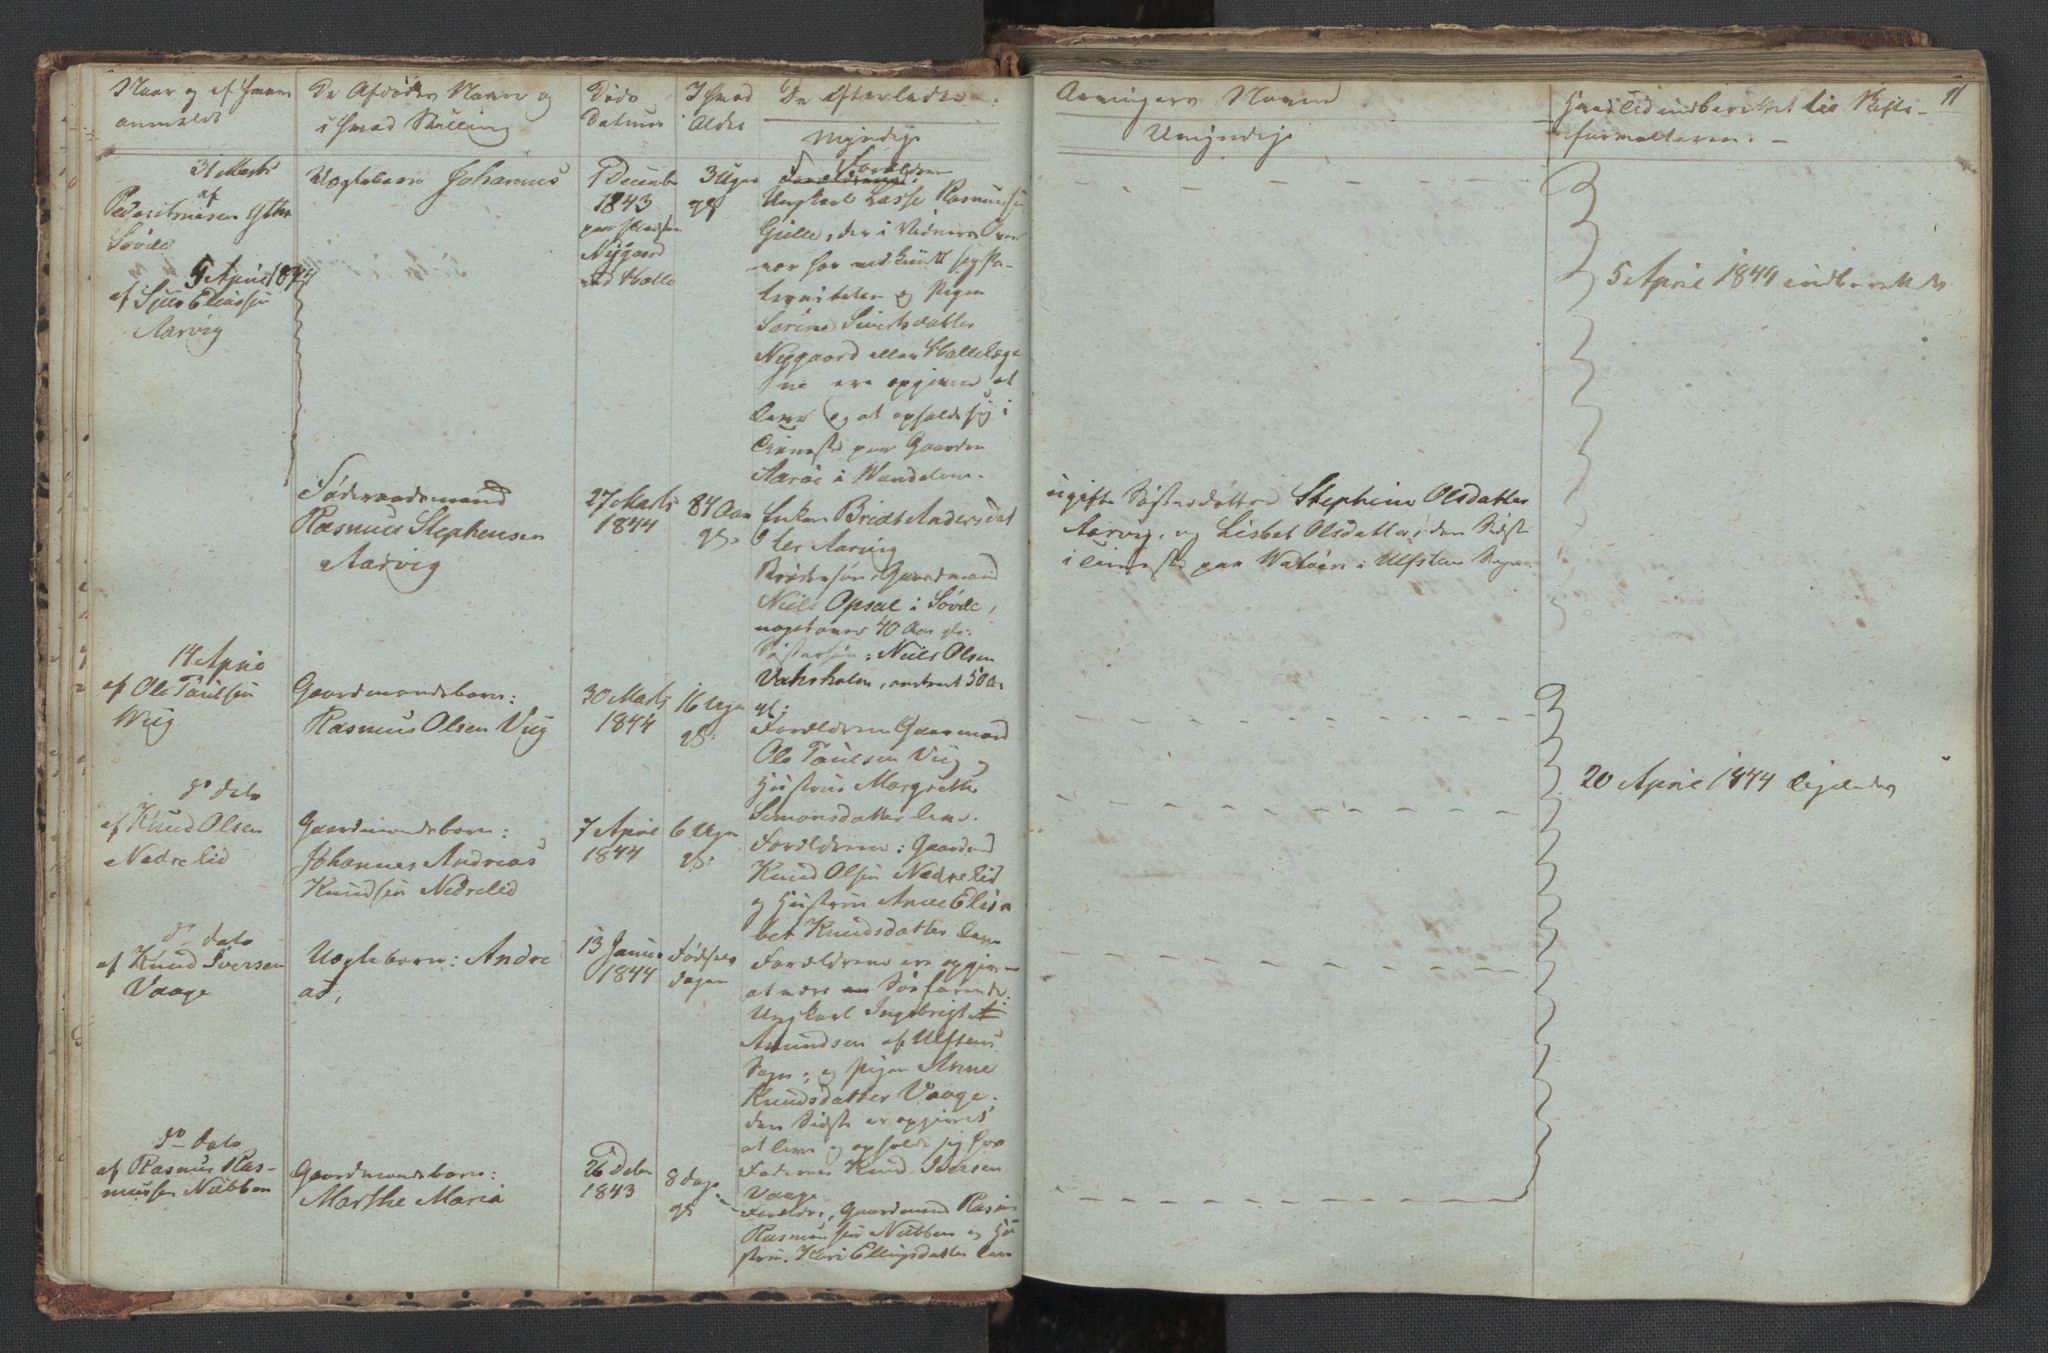 Naar og af hvem
anmeldt
De Afdødes Navn og
i hvad Stilling
Døds
Datum
I hvad
Alder
De efterladte
Myndige
Arvingers Navne
Umyndige
Hvad Tid indberettet til Skifte-
forvalteren.
11
31 Marts
af
Peder Arnesen Ytre
Søvde
5 April 1844
af Sjur Eliassen
Aarvig
Uægtebarn Johannes
1 December
1843
paa Pladsen
Nygaard
3 Uger
gl
Forældrene
Ungkarl Lasse Rasmussen
Gjelle, der i
og Pigen
Sørine Sivertsdatter
Nygaard eller
ere opgivne at
leve og at opholde sig i
Tieneste paa Gaarden
Aarøe i Vandelven.
5 April 1844 indberettet
Føderaadsmand
Rasmus Stephensen
Aarvig
27 Marts
1844
84 Aar
gl.
Enken Bridt Andersdat
ter Aarvig
Brodersøn Gaardmand
Niels Opsal i Søvde,
noget over 40 Aar gl.
Søstersøn: Niels Olsen
Vaksholm, omtrent 50 A.
gl:
ugifte Søsterdøttre Stephine Olsdatter
Aarvig, og Lisbet Olsdatter, den Sidste
i Tieneste paa Vatøen i Ulfsten Sogn.
14 April
af Ole Paulsen
Wiig
Gaardmandsbarn:
Rasmus Olsen Viig
30 Marts
1844
16 Uger
gl:
Forældrene Gaardmand
Ole Paulsen Viig og
Hustrue Margrethe
Simonsdatter leve.
20 April 1844 ligeledes
do dato
af Knud Olsen
Nedrelid
Gaardmandsbarn:
Johannes Andreas
Knudsen Nedrelid
7 April
1844
6 Uger
gl:
Forældrene: Gaardmd
Knud Olsen Nedrelid
og Hustrue Anne Elisa
bet Knudsdatter leve
do dato
af Knud Iversen
Vaage
Uægtebarn: Andre
as,
13 Januar
1844
Fødsels
dagen
Forældrene ere opgivne
at være Søefarende
Ungkarl Ingebrigt
Amundsen af Ulfsten
Sogn; og Pigen Anne
Knudsdatter Vaage;
den Sidste er opgivet
at leve og opholde sig hos
Faderen Knud Iversen
Vaage
do dato
af Rasmus Ras-
mussen Nubben
Gaardmandsbarn:
Marthe Maria
26 Decbr
1843
8 dage
gl
Forældre, Gaardmand Rasmus
Rasmussen Nubben og Hu
strue Kari Ellingsdatter leve